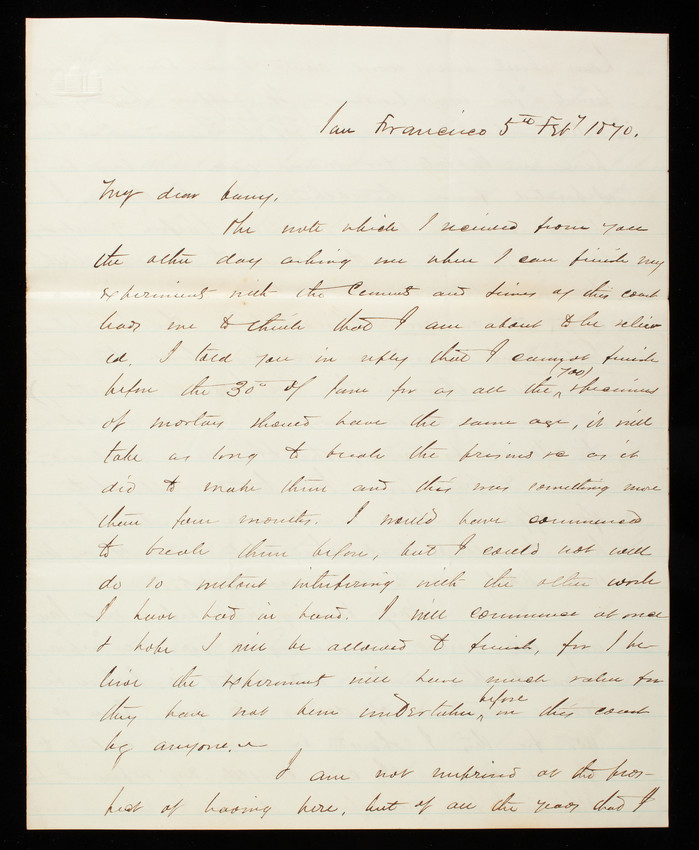 San Francisco 5th Feby 1870.
My dear Casey,
The note which I received from you
the other day asking me when I can finish my
experiments with the Cements and limes of this coast
leads me to think that I am about to be reliev
ed. I told you in reply that I cannot finish
before the 30th of June for as all the (700) specimens
of mortars should have the same age, it will
take as long to break the prisms &c as it
did to make them and this was something more
than four months. I would have commenced
to break them before, but I could not well
do so without interfering with the other work
I have had in hand. I will commence at once
& hope I will be allowed to finish, for I be
lieve the experiments will have much value for
they have not been undertaken before on this coast
by anyone.
I am not surprised at the pros-
pect of leaving here, but of all the years that I